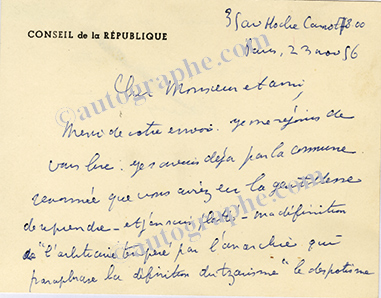 35 av Hoche Carnot 78 00
CONSEIL de la RÉPUBLIQUE
Paris, 23 nov 56
©autographe.com
Cher Monsieur et ami,
Merci de votre envoi. je me réjouis de
vous lire. je savais déjà par la commune
renommée que vous aviez eu la gentillesse
de reprendre - et j'en suis flatté - ma définition
de "l'arbitraire tempéré par l'anarchie" qui
paraphrase la définition du tzarisme "le despotisme